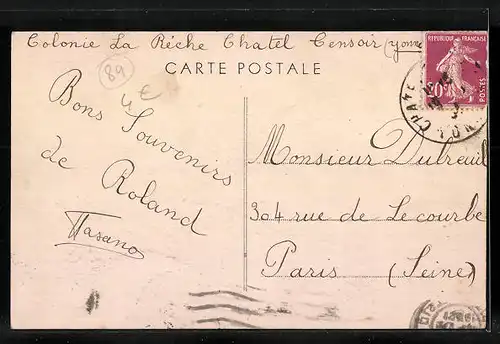 Colonie La Rèche Chatel Censoir (Yonne
REPUBLIQUE FRANÇAISE
20c
POSTES
89
€
CARTE POSTALE
Bons Souvenirs
de Roland
Hasano
Monsieur Dubreuil
304 rue de Lecourbe
Paris (Seine)